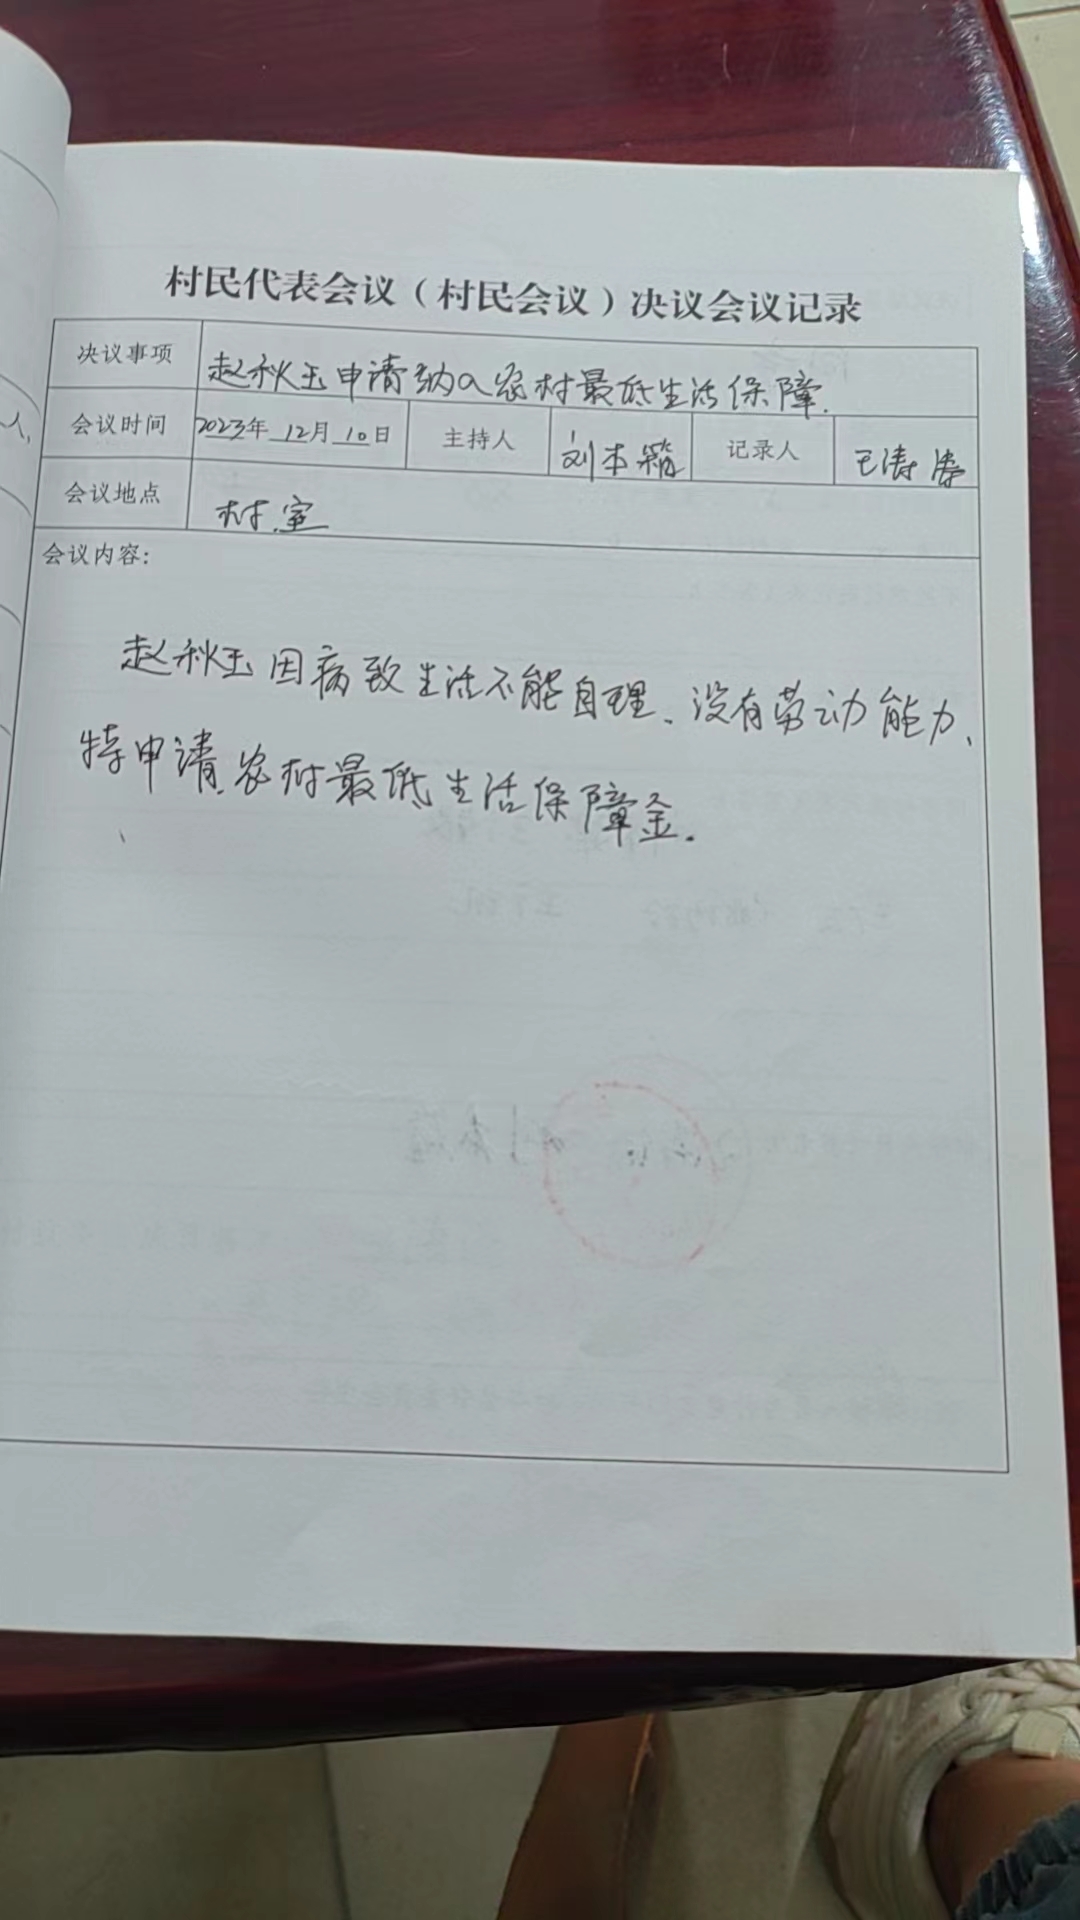 村民代表会议（村民会议）决议会议记录
决议事项 赵秋玉申请纳入农村最低生活保障.
会议时间 2023年 12月 10日 主持人 刘本 记录人 王涛涛
会议地点 村室
会议内容：
赵秋玉因病致生活不能自理、没有劳动能力、
特申请农村最低生活保障金.
人,